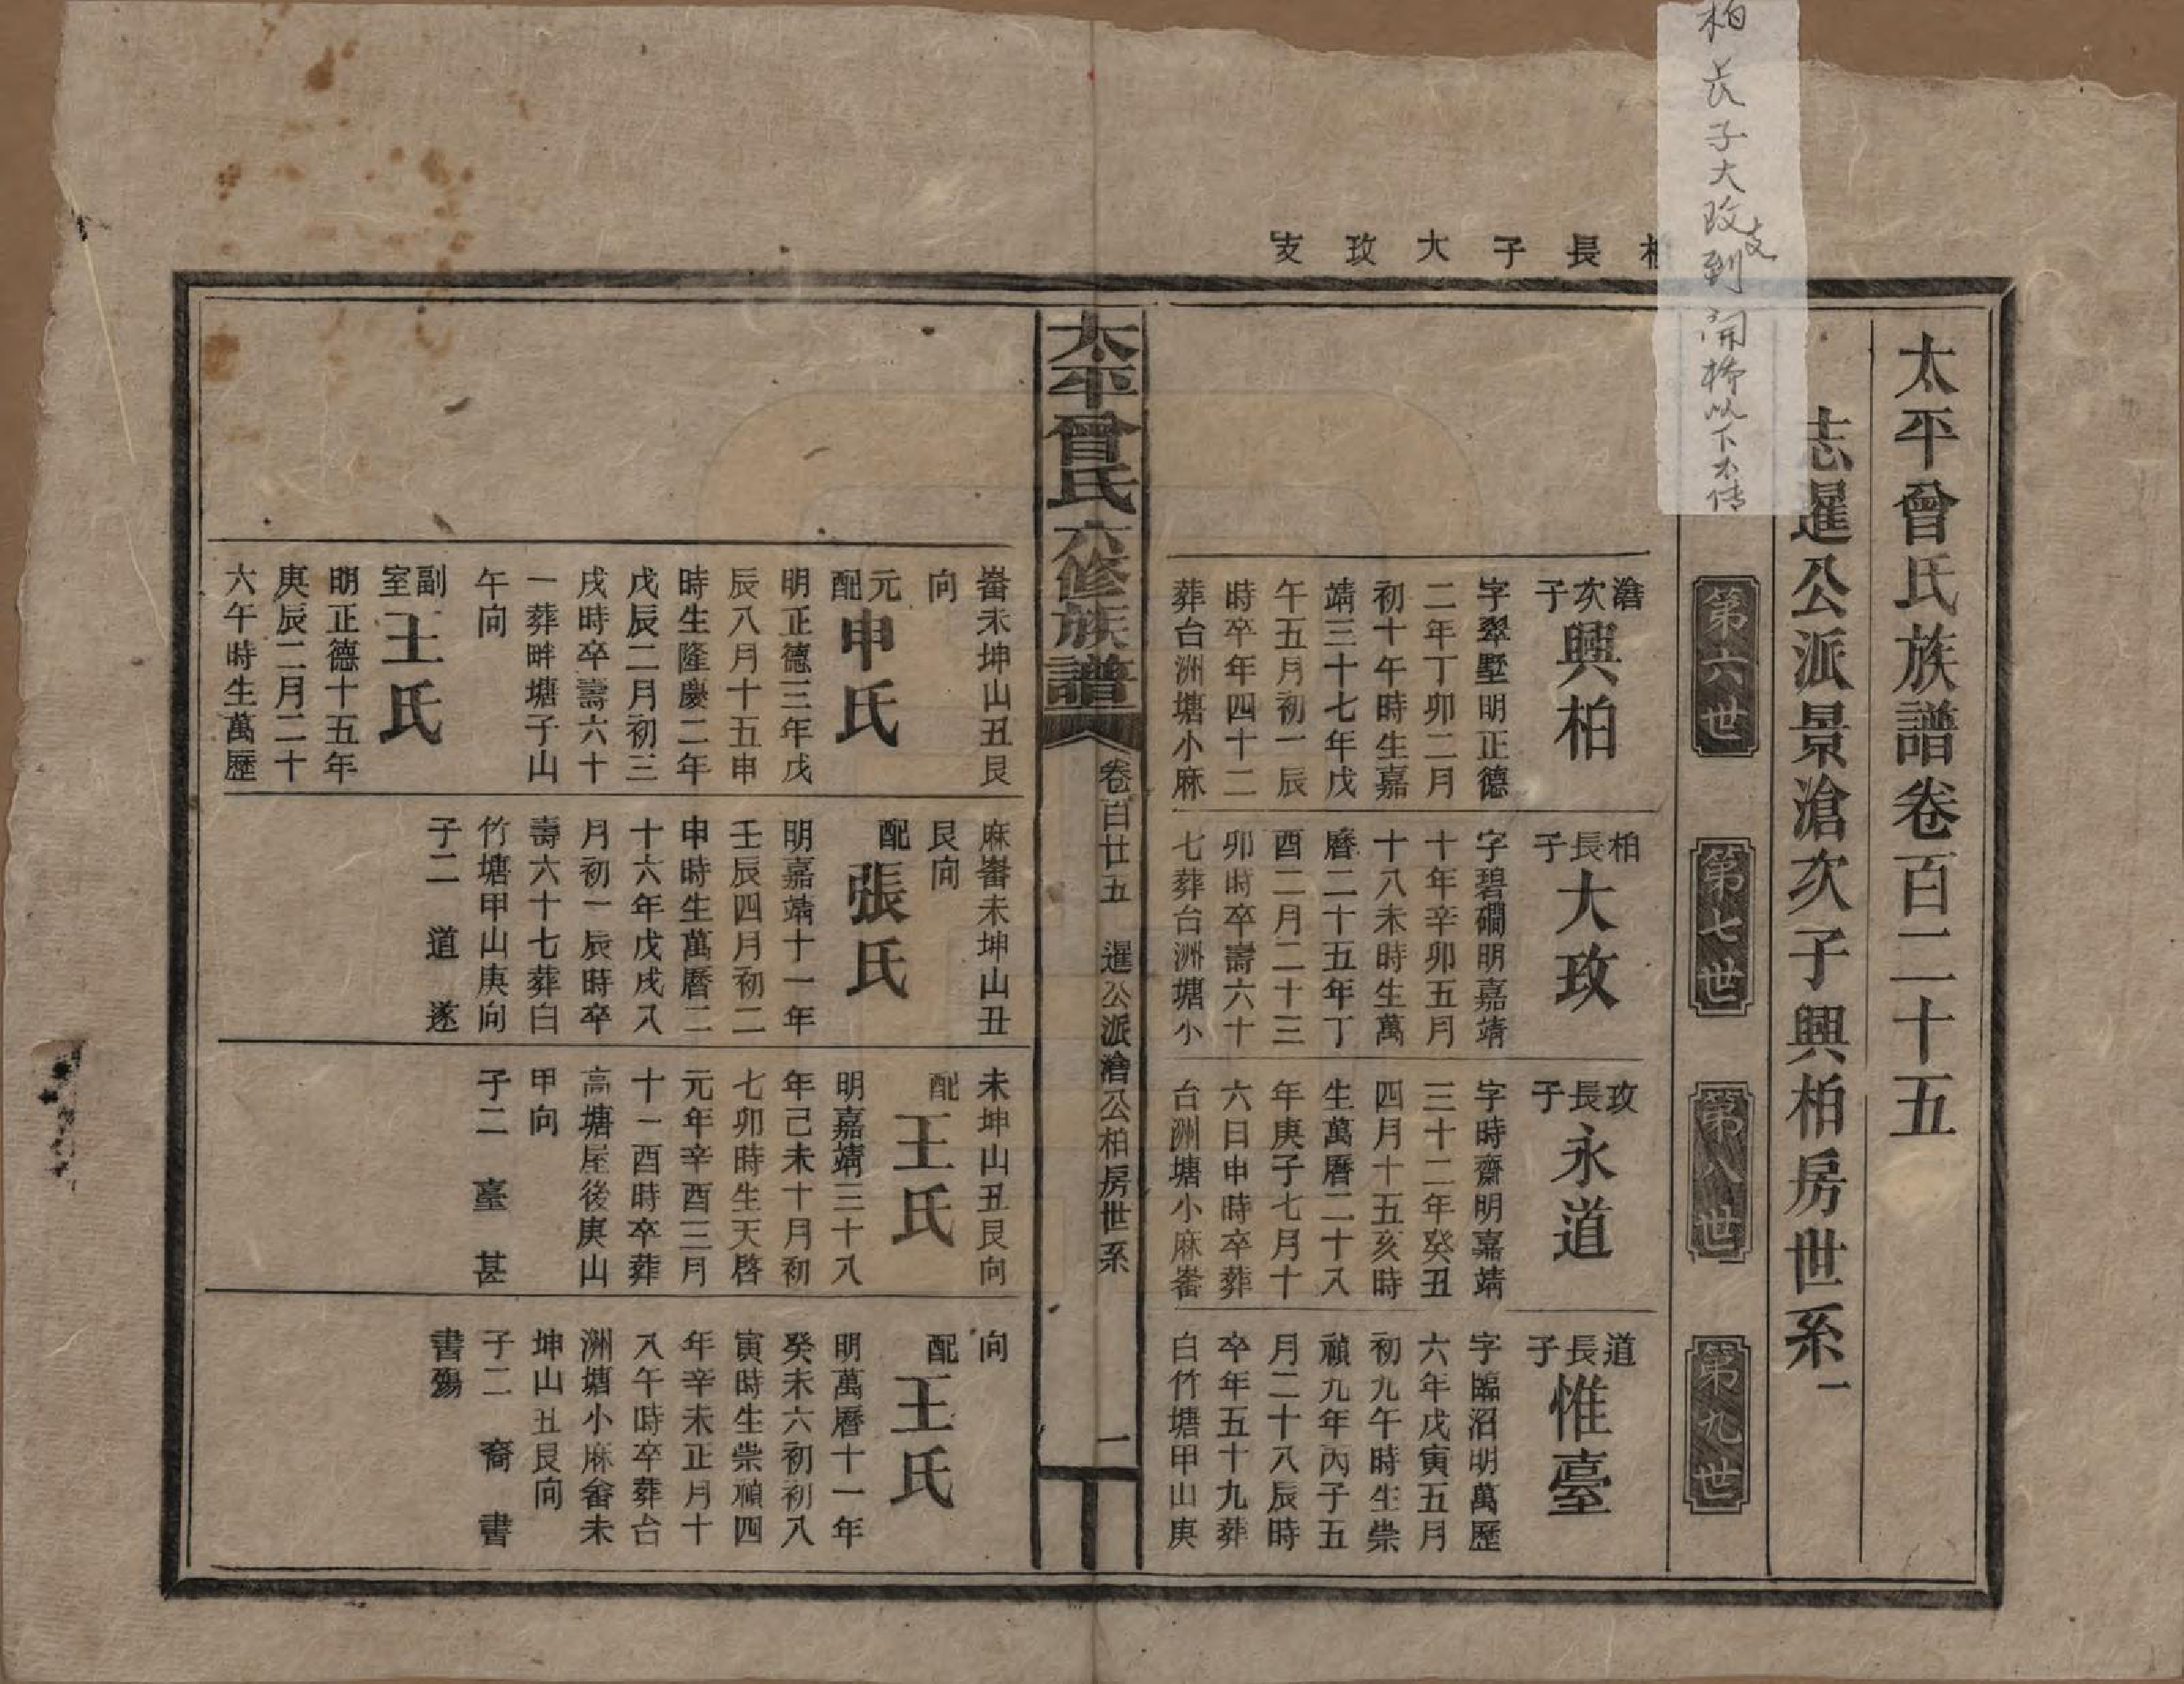 柏長子大玫支到開㭻以下不傳
柏長子大玫支
太平曾氏族譜卷百二十五
志暹公派景滄次子興柏房世系一
第六世
第七世
第八世
第九世
滄次子
興柏
字翠墅明正德
二年丁卯二月
初十午時生嘉
靖三十七年戊
午五月初一辰
時卒年四十二
葬台洲塘小麻
柏長子
大玫
字碧磵明嘉靖
十年辛卯五月
十八未時生萬
曆二十五年丁
酉二月二十三
卯時卒壽六十
七葬台洲塘小
玫長子
永道
字時齋明嘉靖
三十二年癸丑
四月十五亥時
生萬曆二十八
年庚子七月十
六日申時卒葬
台洲塘小麻畨
道長子
惟臺
字臨沼明萬歷
六年戊寅五月
初九午時生崇
禎九年丙子五
月二十八辰時
卒年五十九葬
白竹塘甲山庚
太平曾氏六修族譜
卷百廿五 暹公派滄公柏房世系 一
畨未坤山丑艮
向
元配
申氏
明正德三年戊
辰八月十五申
時生隆慶二年
戊辰二月初三
戌時卒壽六十
一葬畔塘子山
午向
副室
王氏
明正德十五年
庚辰二月二十
六午時生萬歷
麻畨未坤山丑
艮向
配
張氏
明嘉靖十一年
壬辰四月初二
申時生萬曆二
十六年戊戌八
月初一辰時卒
壽六十七葬白
竹塘甲山庚向
子二 道 遂
未坤山丑艮向
配
王氏
明嘉靖三十八
年己未十月初
七卯時生天啓
元年辛酉三月
十一酉時卒葬
高塘屋後庚山
甲向
子二 臺 甚
向
配
王氏
明萬曆十一年
癸未六初初八
寅時生崇禎四
年辛未正月十
八午時卒葬台
洲塘小麻畨未
坤山丑艮向
子二 裔 書
書殤